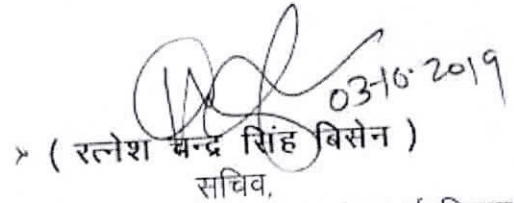 03-10-2019
( रत्नेश चन्द्र सिंह बिसेन )
सचिव,